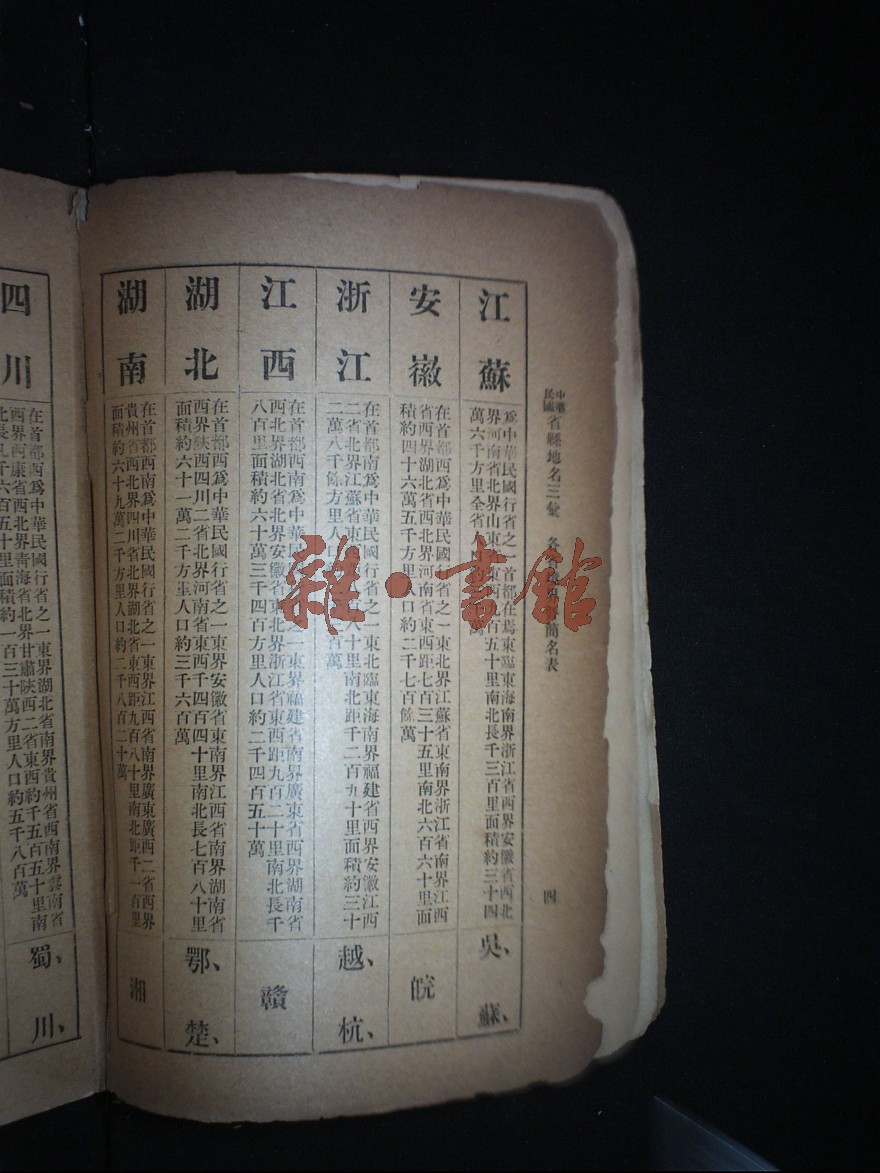 中華民國省縣地名三彙 各省 簡名表
四
江蘇
爲中華民國行省之一首都在焉東臨東海南界浙江省西界安徽省西北
界河南省北界山東 東西 百五十里南北長千三百里面積約三十四
萬六千方里全省人口約 萬
吳、蘇、
安徽
在首都西爲中華民國行省之一東北界江蘇省東南界浙江省南界江西
省西界湖北省西北界河南省東西距七百三十五里南北六百六十里面
積約四十六萬五千方里人口約二千七百餘萬
皖
浙江
在首都南爲中華民國行 東北臨東海南界福建省西界安徽江西
二省北界江蘇省東西 八十里南北距千二百九十里面積約三十
二萬八千餘方里人口 百萬
越、杭、
江西
在首都西南爲中華民 之一東界福建省南界廣東省西界湖南省
西北界湖北省北界安徽省東北界浙江省東西距九百二十里南北長千
八百里面積約六十萬三千四百方里人口約二千四百五十萬
贛
湖北
在首都西爲中華民國行省之一東界安徽省東南界江西省南界湖南省
西界陝西四川二省北界河南省東西千四百四十里南北長七百八十里
面積約六十一萬二千方里人口約三千六百萬
鄂、楚、
湖南
在首都西南爲中華民國行省之一東界江西省南界廣東廣西二省西界
貴州省西北界四川省北界湖北省東西距九百八十里南北距千一百里
面積約六十九萬二千方里人口約二千八百二十萬
湘
四川
在首都西爲中華民國行省之一東界湖北省南界貴州省西南界雲南省
西界西康省西北界青海省北界甘肅陝西二省東西約千五百五十里南
北長九千六百五十里面積約一百三十萬方里人口約五千八百萬
蜀、川、
雜·書館